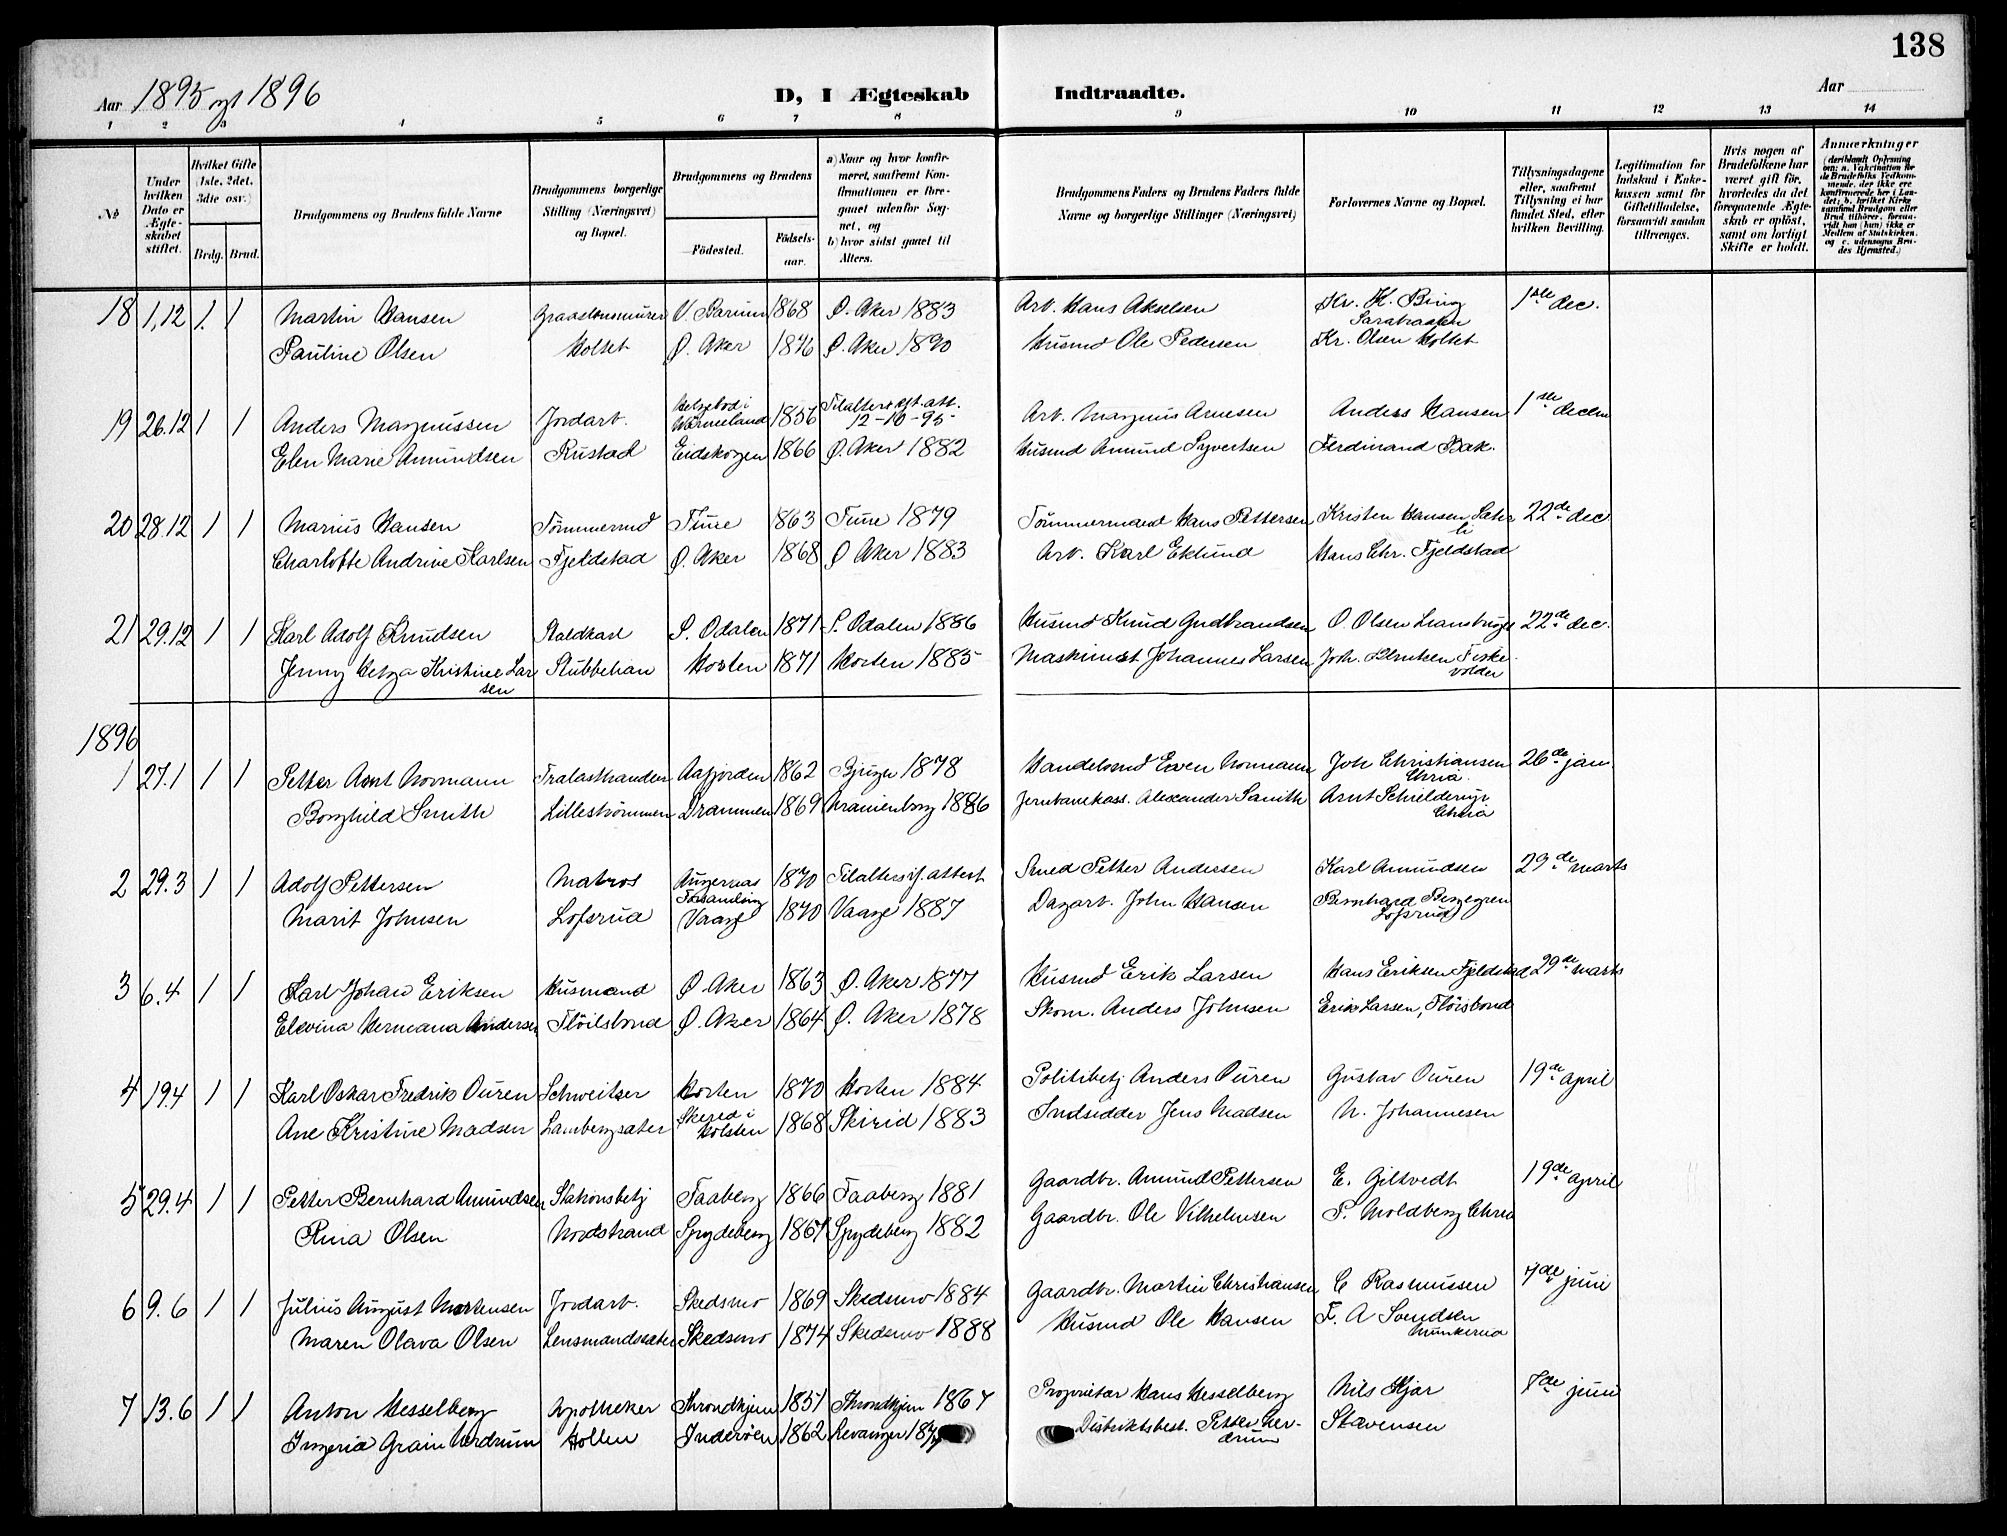 138
Aar 1895 og 1896 D, I Ægteskab Indtraadte. Aar
1 2 3 4 5 6 7 8 9 10 11 12 13 14
No
Under hvilken Dato er Ægteskabet stiftet.
Hvilket Gifte (1ste, 2det, 3die osv.)
Brdg. Brud.
Brudgommens og Brudens fulde Navne
Brudgommens borgerlige Stilling (Næringsvei) og Bopæl.
Brudgommens og Brudens
Födested. Födsels-aar.
a) Naar og hvor konfirmeret, saafremt Konfirmationen er foregaaet udenfor Sognet, og
b) hvor sidst gaaet til Alters.
Brudgommens Faders og Brudens Faders fulde Navne og borgerlige Stillinger (Næringsvei)
Forlovernes Navne og Bopæl.
Tillysningsdagene eller, saafremt Tillysning ei har fundet Sted, efter hvilken Bevilling.
Legitimation for Indskud i Enkekassen samt for Giftetilladelse, forsaavidt saadan tiltrænges.
Hvis nogen af Brudefolkene har været gift før, hvorledes da det foregaaende Ægteskab er oplöst, samt om lovligt Skifte er holdt.
Anmærkninger (deriblandt Oplysning om: a. Vakcination for de Brudefolks Vedkommende, der ikke ere konfirmerede her i Landet; b. hvilket Kirkesamfund Brudgom eller Brud tilhörer, forsaavidt han (hun) ikke er Medlem af Statskirken, og c. udensogns Brudes Hjemsted.)
18 1,12 1. 1 Martin Hansen Graastensmurer V. Bærum 1868 Ø. Aker 1883 Arb. Hans Akselsen Kr. H. Bing 1ste dec.
Sarabraaten
Pauline Olsen Holtet Ø. Aker 1876 Ø. Aker 1890 Husmd Ole Pedersen Kr. Olsen Holtet
19 26.12 1 1 Anders Magnussen Jordarb. Helgebod i Wermeland 1856 Tilalters iflt. att. 12-10-95 Arb. Magnus Arnesen Anders Hansen 1ste decbr
Elen Marie Amundsen Rustad Eidskogen 1866 Ø. Aker 1882 Husmd Amund Syvertsen Ferdinand Bak.
20 28.12 1 1 Marius Hansen Tømmermd Tune 1863 Tune 1879 Tømmermand Hans Pettersen Kristen Hansen Sætre 22de dec
li
Charlotte Andrine Karlsen Fjeldstad Ø. Aker 1868 Ø Aker 1883 Arb. Karl Eklund Hans Chr. Fjeldstad
21 29.12 1 1 Karl Adolf Knudsen Staldkarl S. Odalen 1871 S. Odalen 1886 Husmd Knud Gudbrandsen O. Olsen Liansbråten 22de dec.
Jenny Helga Kristine Larsen Stubbehan Horten 1871 Horten 1885 Maskinist Johannes Larsen Joh. Berntsen Fiskevolden
1896
1 27.1 1 1 Petter Arnt Normann Trælasthandler Aafjorden 1862 Bjugn 1878 Handelsmd Even Normann Joh Christiansen 26de jan.
Chria.
Borghild Smith Lillestrømmen Drammen 1869 Uranienborg 1886 Jernbanekass. Alexander Smith Arnt Schielderup
Chria
2 29.3 1 1 Adolf Pettersen Matros Augernæs Forsamling 1870 Tilalters if. attest Smed Petter Andersen Karl Amundsen 29de marts
Marit Johnsen Lofsrud Vaage 1870 Vaage 1887 Dagarb. John Hansen Bernhard Berggren
Lofsrud
3 6.4 1 1 Karl Johan Eriksen Husmand Ø. Aker 1863 Ø. Aker 1877 Husmd Erik Larsen Hans Eriksen Fjeldstad 29de marts
Elevina Hermana Andersen Fløilsbond Ø. Aker 1864 Ø. Aker 1878 Skom. Anders Johnsen Erik Larsen, Fløisbond
4 19.4 1 1 Karl Oskar Fredrik Ouren Schweitser Horten 1870 Horten 1884 Politibetj Anders Ouren Gustav Ouren 19de april
Ane Kristine Madsen Lambergsæter Skered i Holsten 1868 Skirid 1883 Indsidder Jens Madsen N. Johannesen
5 29.4 1 1 Petter Bernhard Amundsen Stationsbetj Faaberg 1866 Faaberg 1881 Gaardbr. Amund Pettersen E. Giltvedt 19de april
Rina Olsen Nordstrand Spydeberg 1867 Spydeberg 1882 Gaardbr. Ole Vilhelmsen P. Moldberg Chria
6 9.6 1 1 Julius August Mortensen Jordarb. Skedsmo 1869 Skedsmo 1884 Gaardbr. Martin Christiansen C Rasmussen 7de juni
Maren Olava Olsen Lensmandssæter Skedsmo 1874 Skedsmo 1888 Husmd Ole Hansen F. A Svendsen
Munkerud
7 13.6 1 1 Anton Hesselberg Apotheker Throndhjem 1851 Throndhjem 1867 Proprietær Hans Hesselberg Nils Kjær 7de juni
Ingeria Grain Verdrum Hollen Inderøen 1862 Levanger Distriktsbest. Petter Verdrum Stævensen